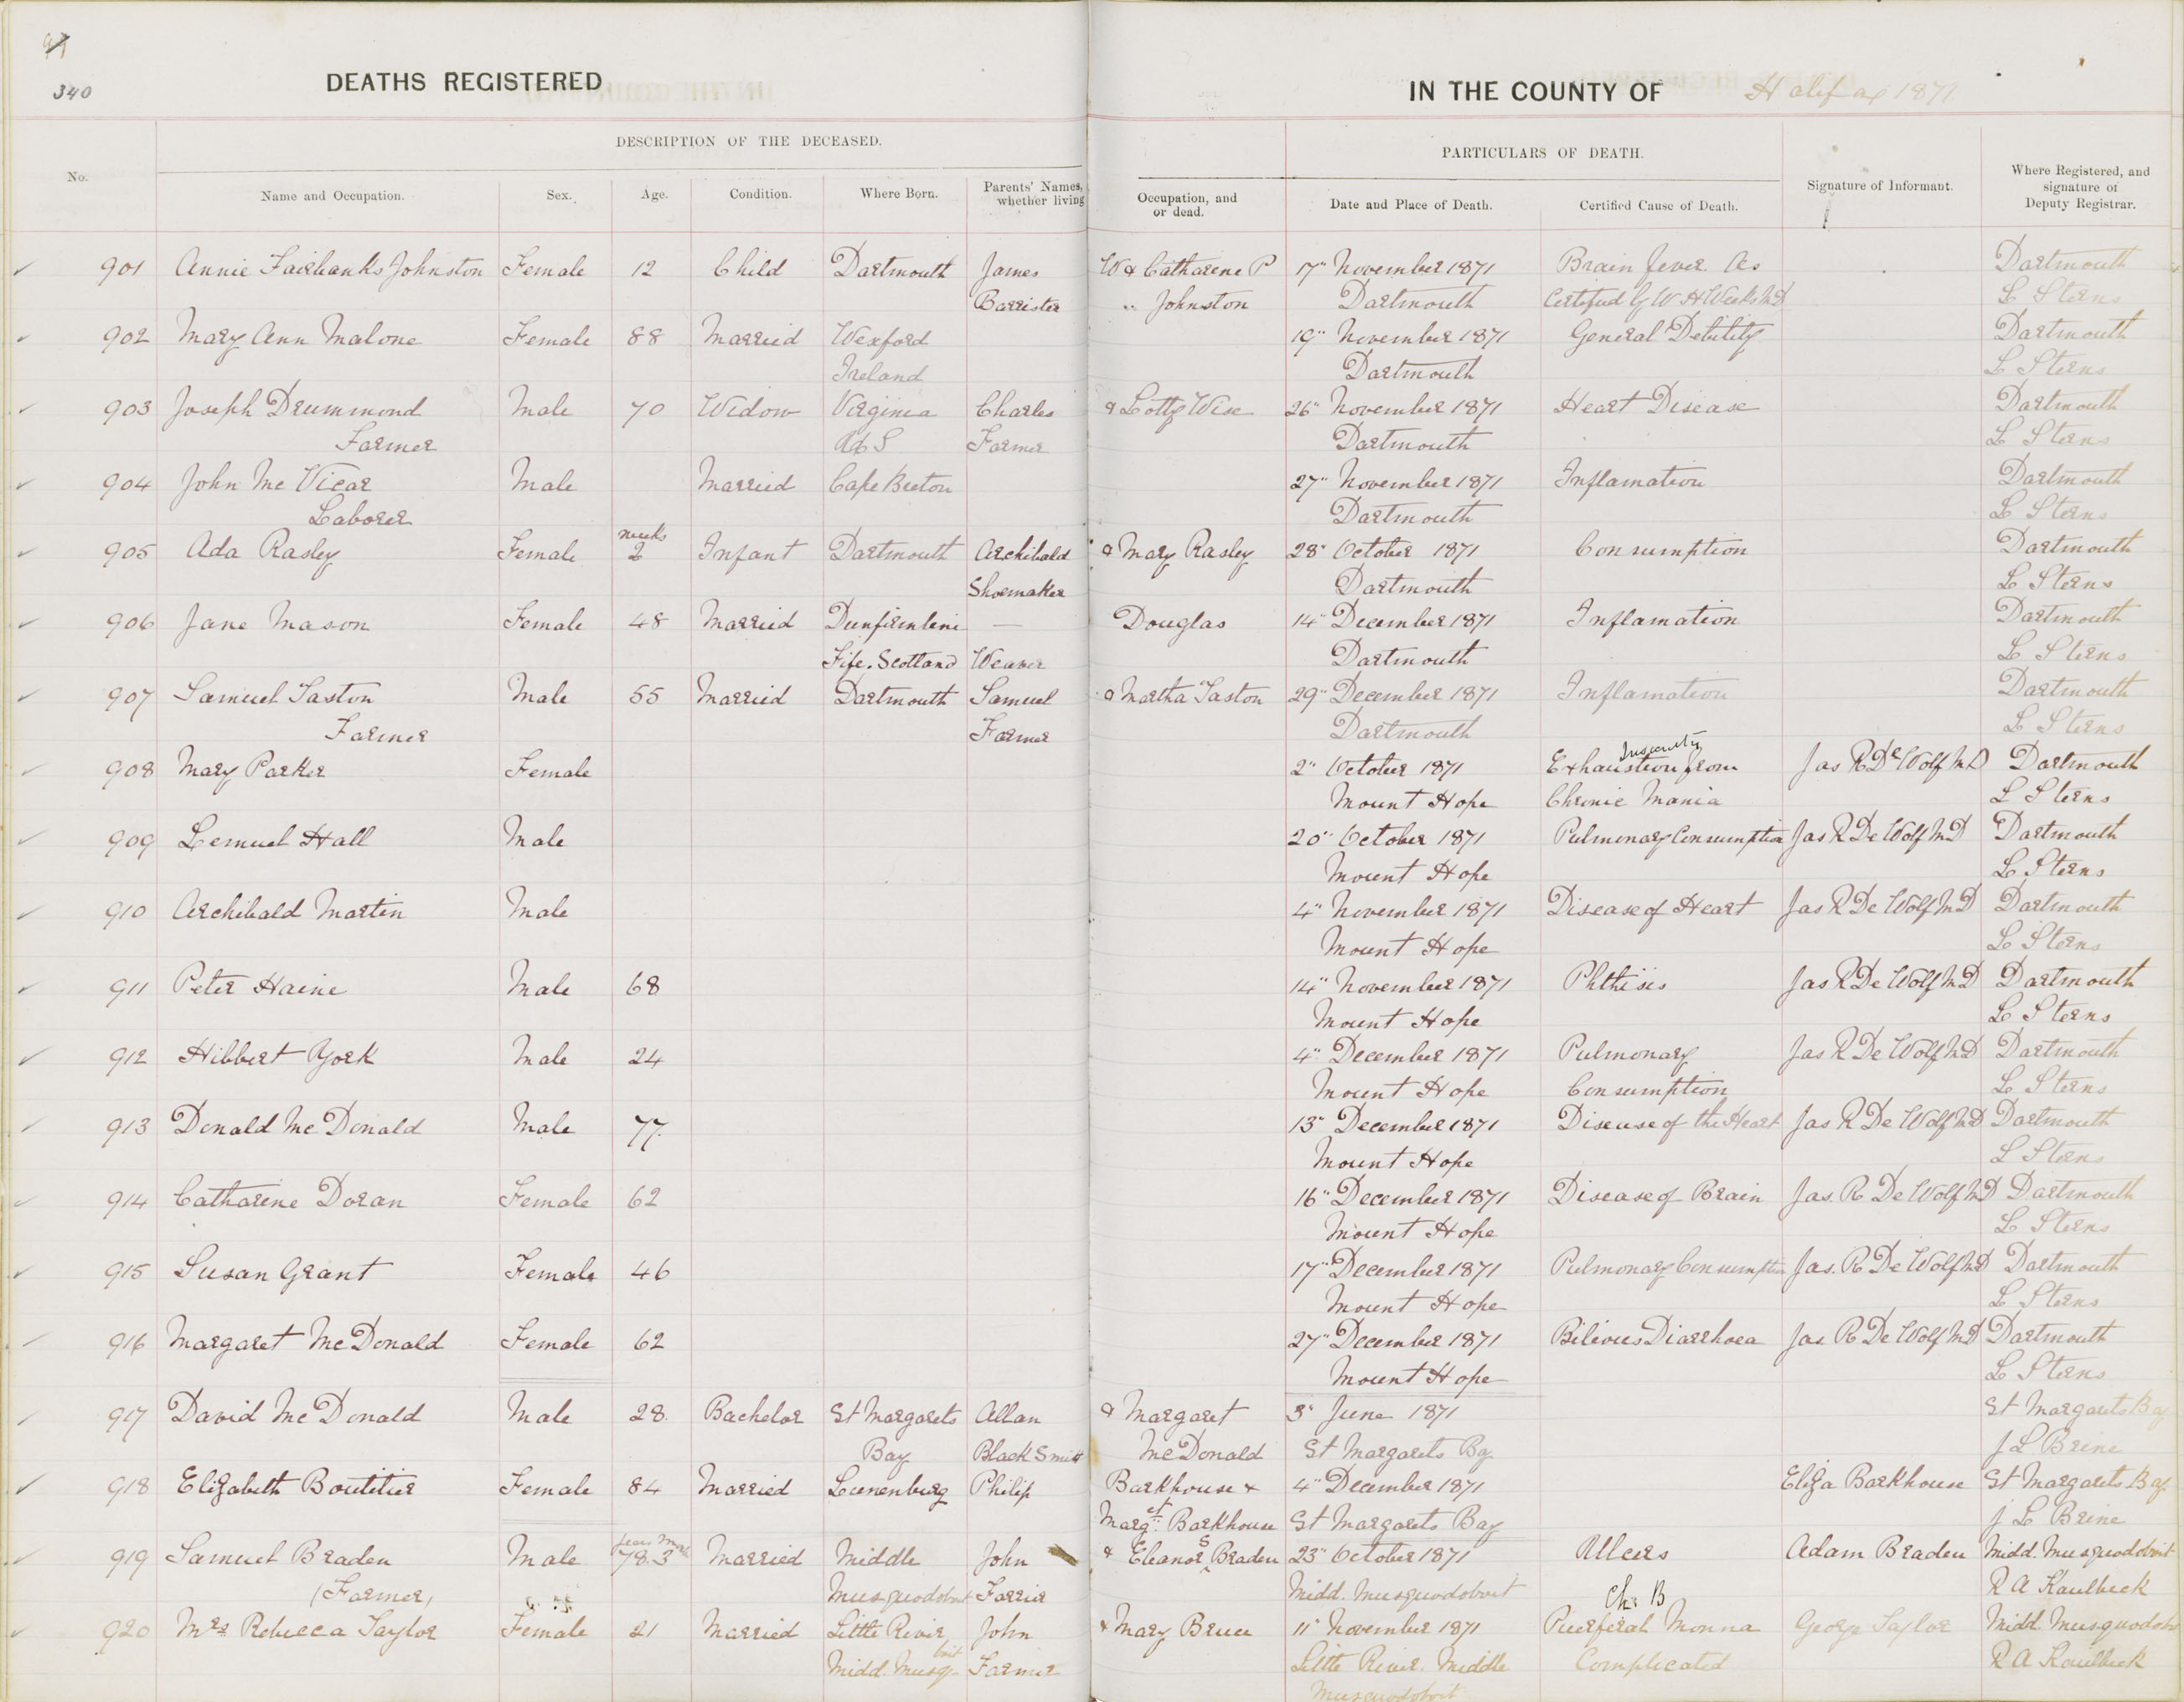 340
DEATHS REGISTERED
IN THE COUNTY OF Halifax 1871
DESCRIPTION OF THE DECEASED.
PARTICULARS OF DEATH.
No. Name and Occupation. Sex. Age. Condition. Where Born. Parents' Names, whether living Occupation, and or dead. Date and Place of Death. Certified Cause of Death. Signature of Informant. Where Registered, and signature of Deputy Registrar.
901 Annie Fairbanks Johnston Female 12 Child Dartmouth James W & Catharine P 17" November 1871 Brain fever. As Dartmouth
Barrister " Johnston Dartmouth Certified by W H Weeks MD L Sterns
902 Mary Ann Malone Female 88 Married Wexford 19" November 1871 General Debility Dartmouth
Ireland Dartmouth L Sterns
903 Joseph Drummond Male 70 Widow Virginia Charles & Lotty Wise 26" November 1871 Heart Disease Dartmouth
Farmer Farmer Dartmouth L Sterns
904 John Mc Vicar Male Married Cape Breton 27" November 1871 Inflamation Dartmouth
Laborer Dartmouth L Sterns
905 Ada Rasley Female weeks 2 Infant Dartmouth Archibald & Mary Rasley 28" October 1871 Consumption Dartmouth
Shoemaker Dartmouth L Sterns
906 Jane Mason Female 48 Married Dunfirmlini — Douglas 14" December 1871 Inflamation Dartmouth
Fife. Scotland Weaver Dartmouth L Sterns
907 Samuel Taston Male 55 Married Dartmouth Samuel & Martha Taston 29" December 1871 Inflamation Dartmouth
Farmer Farmer Dartmouth L Sterns
908 Mary Parker Female 2" October 1871 Exhaustion from Jas R De Wolf MD Dartmouth
Mount Hope Chronic Mania L Sterns
909 Lemuel Hall Male 20" October 1871 Pulmonary Consumption Jas R De Wolf MD Dartmouth
Mount Hope L Sterns
910 Archibald Martin Male 4" November 1871 Disease of Heart Jas R De Wolf MD Dartmouth
Mount Hope L Sterns
911 Peter Haine Male 68 14" November 1871 Phthisis Jas R De Wolf MD Dartmouth
Mount Hope L Sterns
912 Hibbert York Male 24 4" December 1871 Pulmonary Jas R De Wolf MD Dartmouth
Mount Hope Consumption L Sterns
913 Donald Mc Donald Male 77 13" December 1871 Disease of the Heart Jas R De Wolf MD Dartmouth
Mount Hope L Sterns
914 Catharine Doran Female 62 16" December 1871 Disease of Brain Jas. R De Wolf MD Dartmouth
Mount Hope L Sterns
915 Susan Grant Female 46 17" December 1871 Pulmonary Consumption Jas. R De Wolf MD Dartmouth
Mount Hope L Sterns
916 Margaret McDonald Female 62 27" December 1871 Bilious Diarrhoea Jas R De Wolf MD Dartmouth
Mount Hope L Sterns
917 David Mc Donald Male 28 Bachelor St Margarets Allan & Margaret 3" June 1871 St Margarets Bay
Bay Black Smith McDonald St Margarets By J L Brine
918 Elizabeth Boutitier Female 84 Married Lunenburg Philip Barkhouse & 4" December 1871 Eliza Barkhouse St Margarets Bay
Margt Barkhouse St Margarets Bay J L Brine
919 Samuel Braden Male 78.3 Married Middle John & Eleanor S Braden 23" October 1871 Ulcers Adam Braden Midd. Musquodoboit
(Farmer) Musquodoboit Farrier Midd. Musquodoboit R A Kaulbeck
920 Mrs Rebecca Taylor Female 21 Married Little River John & Mary Bruce 11" November 1871 Puerferah Monna George Taylor Midd Musquodob
Midd. Musqboit Farmer Little River. Middle Complicated R A Kaulbeck
Musquodoboit